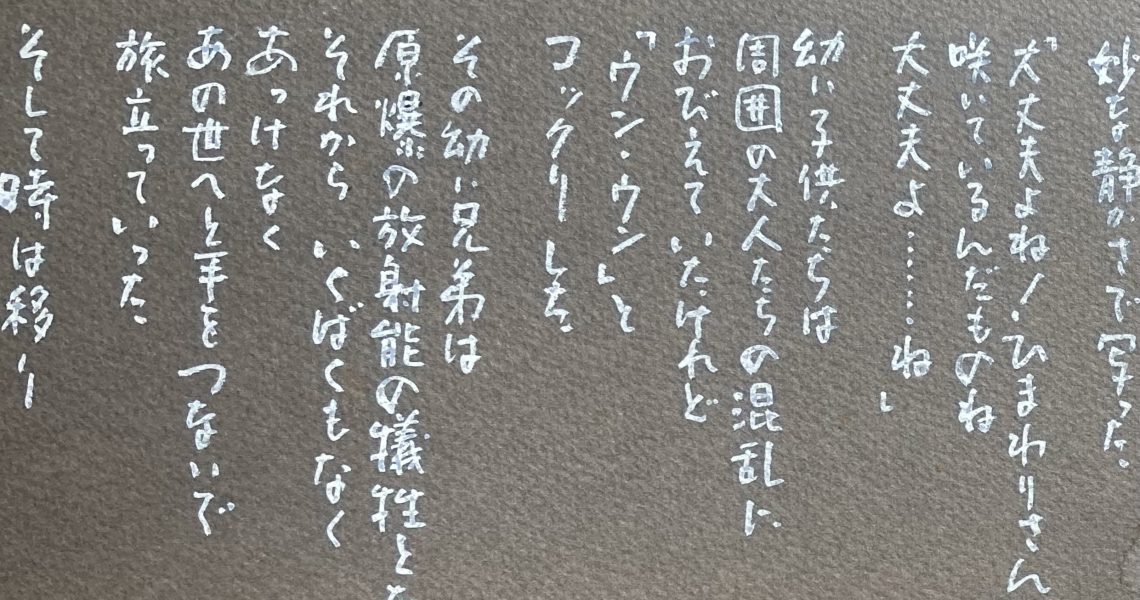 妙な静かさで写った
「大丈夫よね!ひまわりさん
咲いているんだものね
大丈夫よ……ね」
幼い子供たちは
周囲の大人たちの混乱に
おびえていたけれど
「ウン・ウン」と
コックリした
その幼い兄弟は
原爆の放射能の犠牲とな
それから いくばくもなく
あっけなく
あの世へと手をつないで
旅立っていった
そして時は移り